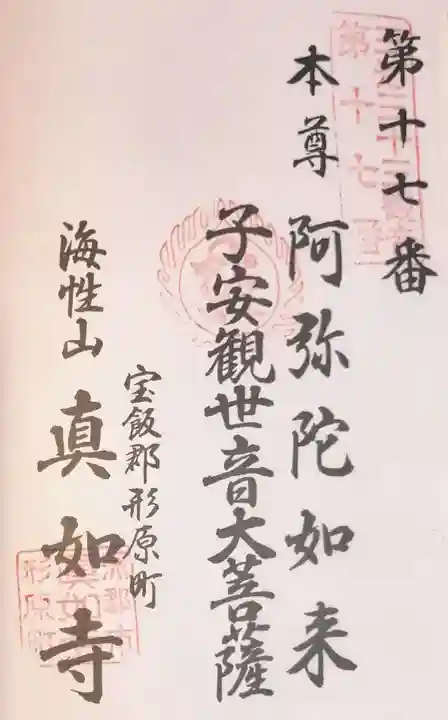 第十七番
本尊 阿弥陀如来
子安観世音大菩薩
宝飯郡形原町
海性山 真如寺
第十七番